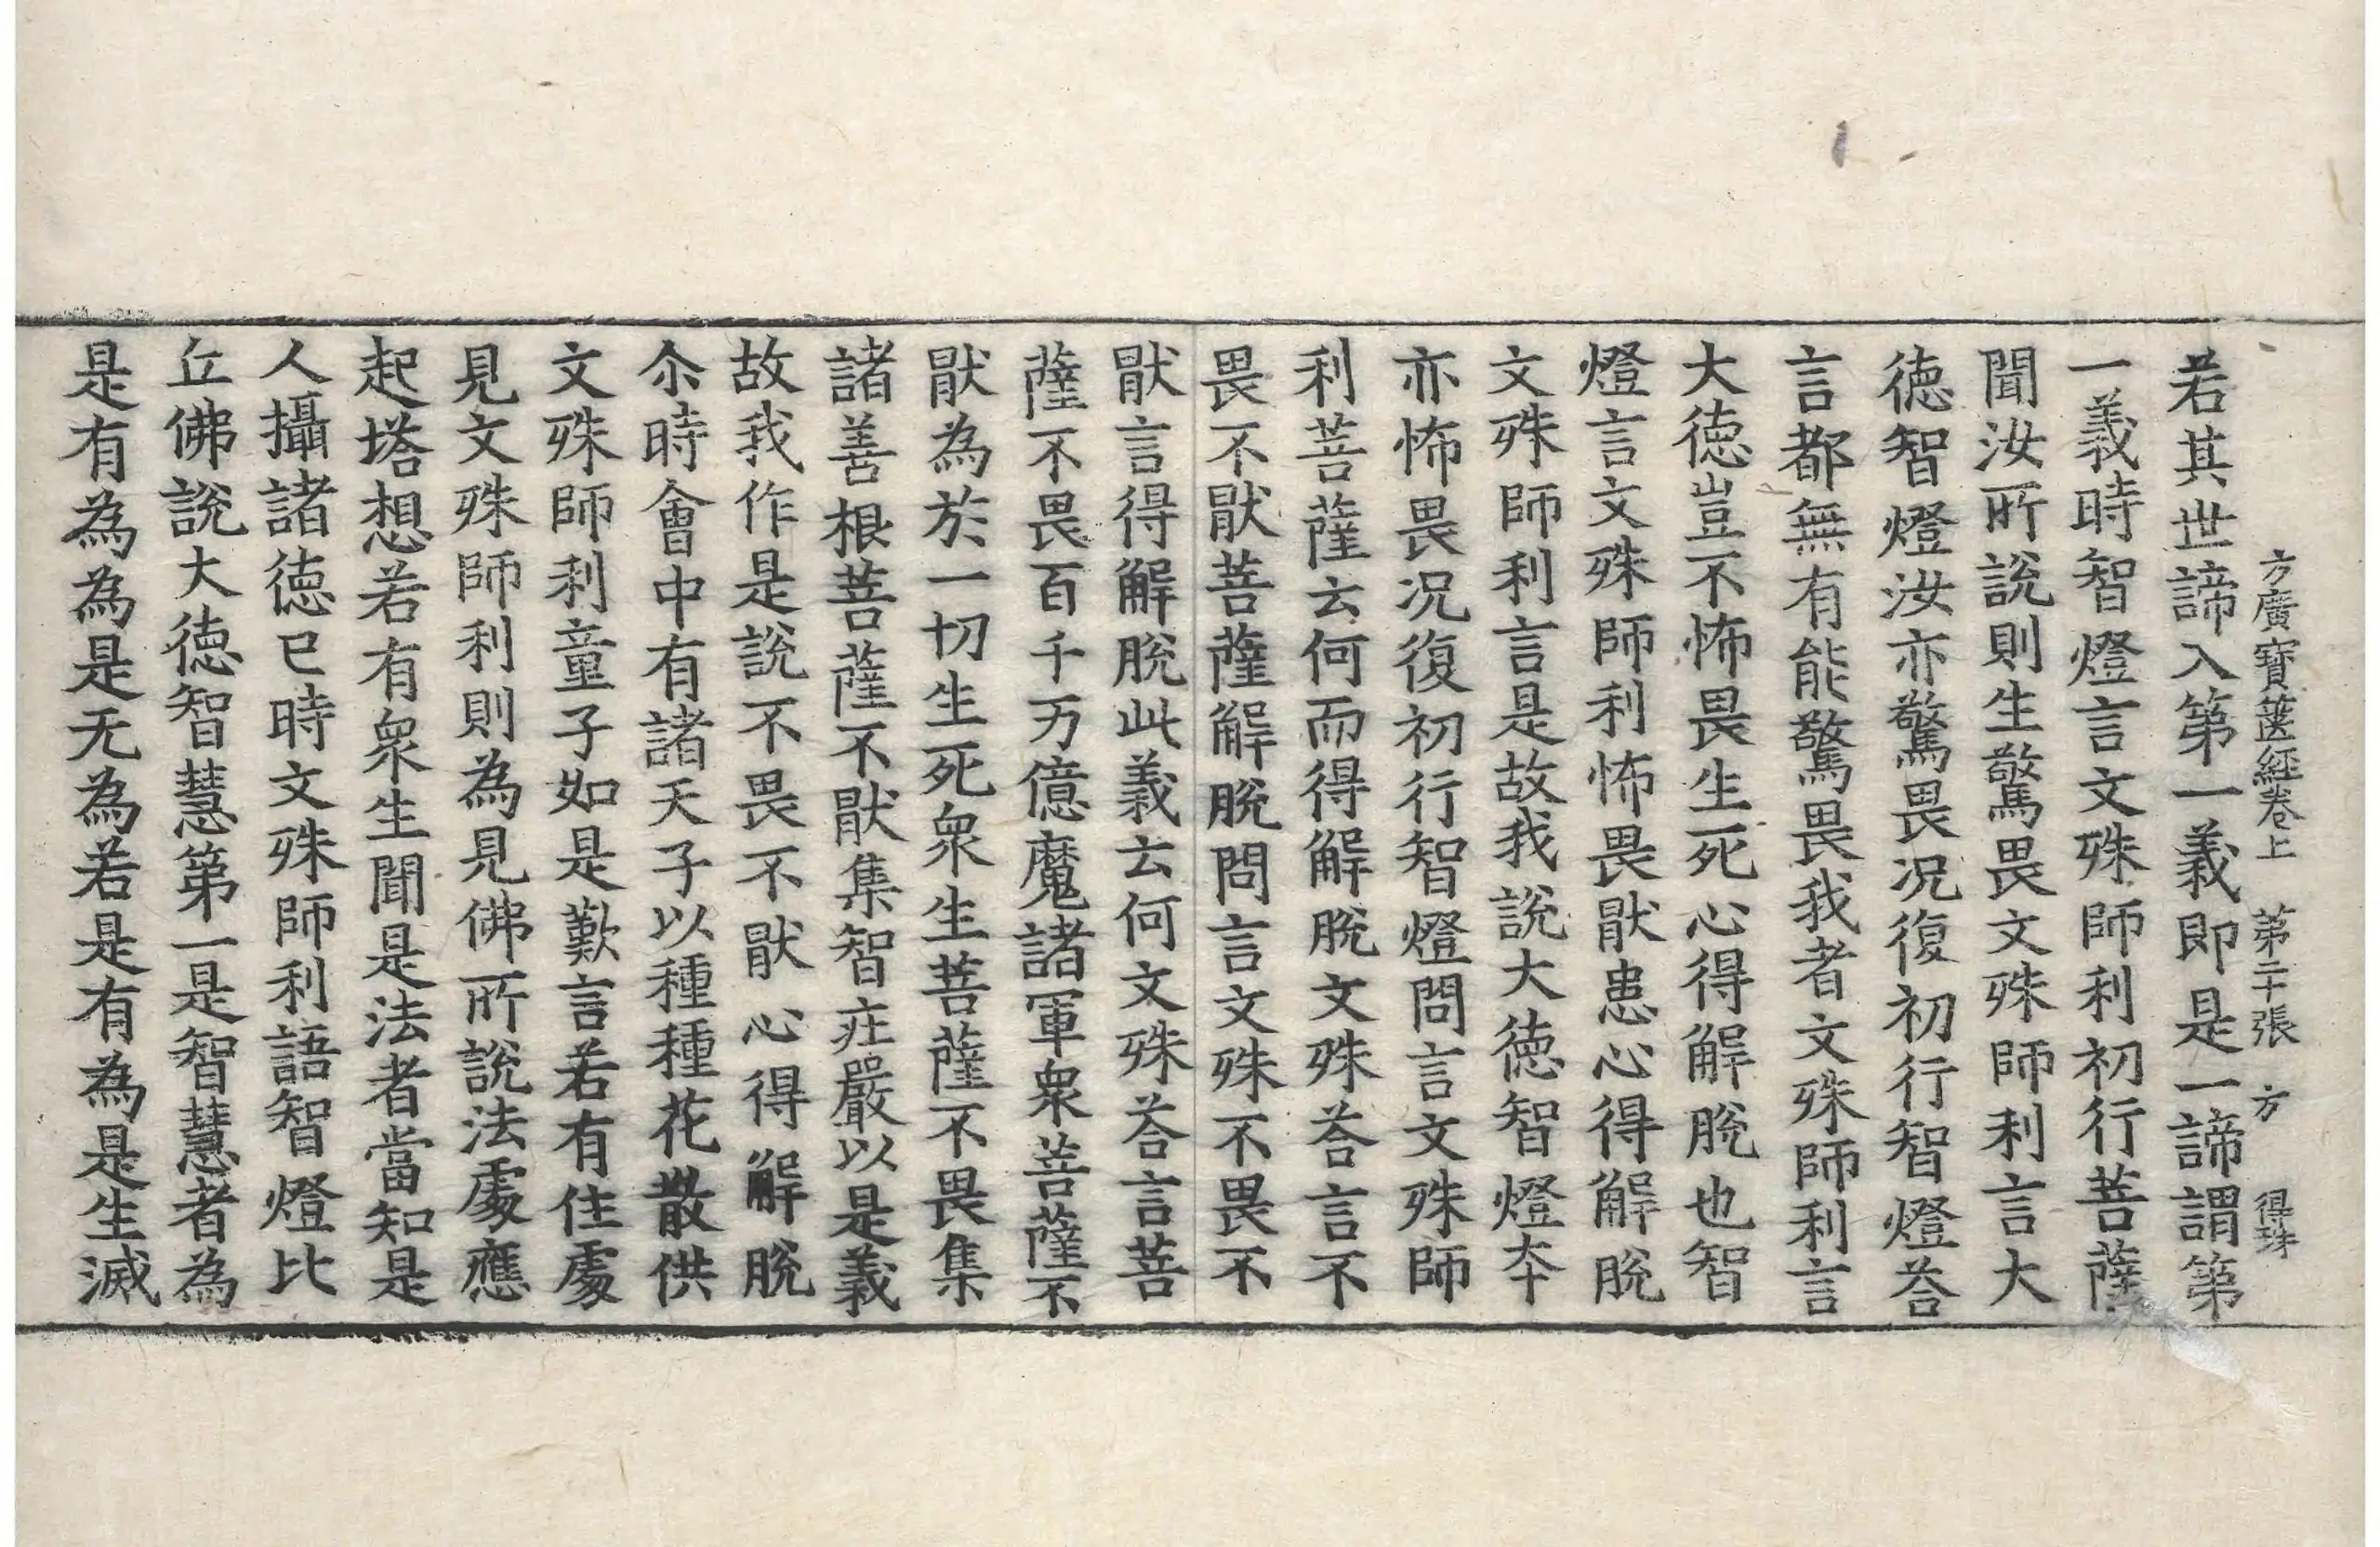 方廣寶篋經卷上 第二十張 方 得珠
若其世諦入第一義即是一諦謂第
一義時智燈言文殊師利初行菩薩
聞汝所說則生驚畏文殊師利言大
徳智燈汝亦驚畏况復初行智燈荅
言都無有能驚畏我者文殊師利言
大徳豈不怖畏生死心得解脫也智
燈言文殊師利怖畏猒患心得解脫
文殊師利言是故我說大徳智燈夲
亦怖畏况復初行智燈問言文殊師
利菩薩云何而得解脫文殊荅言不
畏不猒菩薩解脫問言文殊不畏不
猒言得解脫此義云何文殊荅言菩
薩不畏百千万億魔諸軍衆菩薩不
猒為於一切生死衆生菩薩不畏集
諸善根菩薩不猒集智莊嚴以是義
故我作是說不畏不猒心得解脫
尒時會中有諸天子以種種花散供
文殊師利童子如是歎言若有住處
見文殊師利則為見佛所說法處應
起塔想若有衆生聞是法者當知是
人攝諸徳已時文殊師利語智燈比
丘佛說大徳智慧第一是智慧者為
是有為為是无為若是有為是生滅